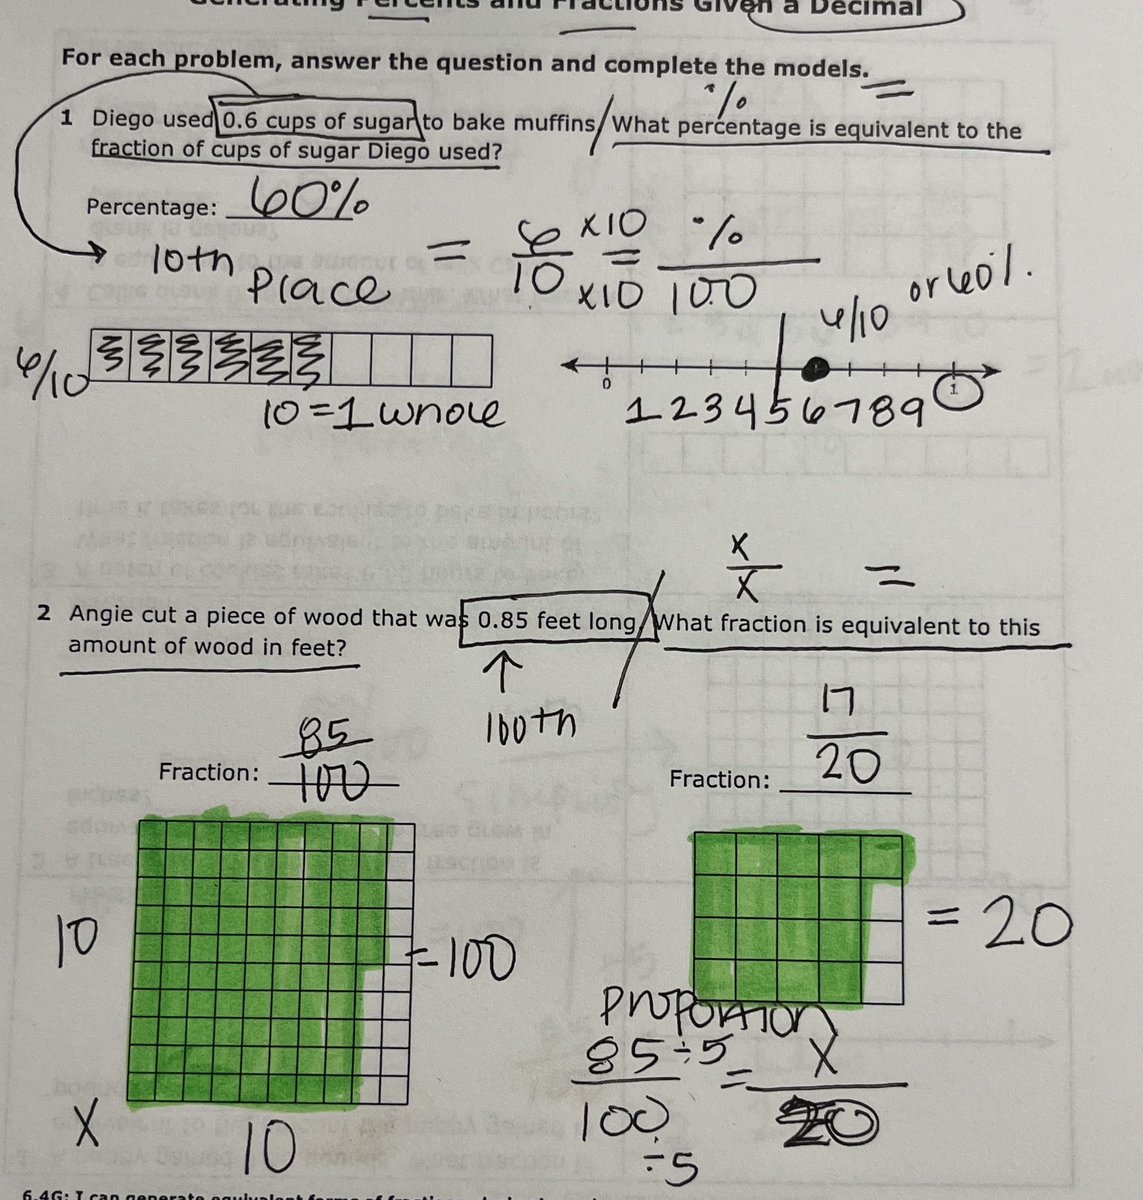 Generating Percents and Fractions Given a Decimal
For each problem, answer the question and complete the models.
% =
1 Diego used 0.6 cups of sugar to bake muffins. What percentage is equivalent to the
fraction of cups of sugar Diego used?
Percentage: 60%
10th Place = 6/10 ×10 = ×10 %/100
6/10 or 60%
6/10
0 1
10 = 1 whole
1 2 3 4 5 6 7 8 9
x/x =
2 Angie cut a piece of wood that was 0.85 feet long. What fraction is equivalent to this
amount of wood in feet?
100th
Fraction: 85/100
Fraction: 17/20
10 = 100
= 20
x 10
Proportion
85 ÷5 / 100 ÷5 = x/20